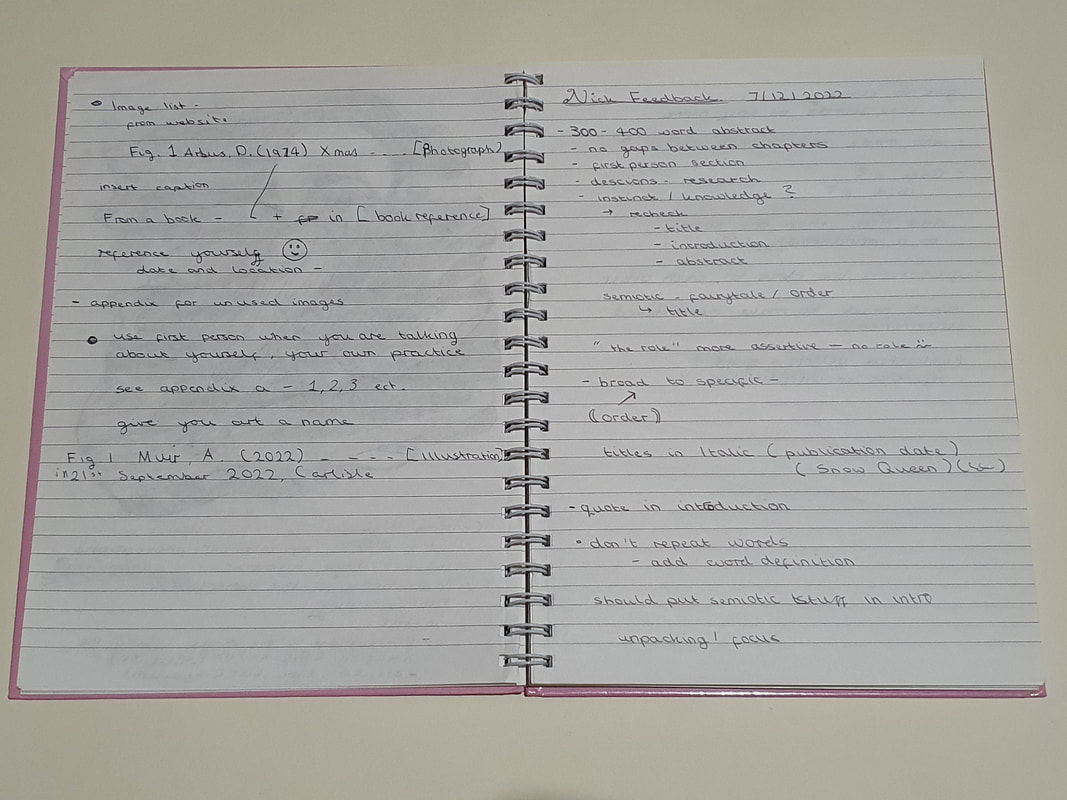 • Image list -
from website
Fig. 1 Arbus, D. (1974) Xmas - - - - [Photograph]
insert caption
From a book - + in [book reference]
reference yourself ☺
date and location -
- appendix for unused images
• use first person when you are talking
about yourself, your own practice
see appendix a - 1, 2, 3 ect.
give you art a name
Fig 1 Muir, A (2022) - - - - [Illustration]
in 21st September 2022, Carlisle
Nick Feedback 7/12/2022
- 300 - 400 word abstract
- no gaps between chapters
- first person section
- descions - research
- instinct / knowledge ?
→ recheck
- title
- introduction
- abstract
semiotic - fairytale / order
↳ title
"the role" more assertive - no role
- broad to specific -
↗
(order)
titles in Italic (publication date)
(Snow Queen) ( )
- quote in introduction
• don't repeat words
- add word definition
should put semiotic stuff in intro
unpacking / focus